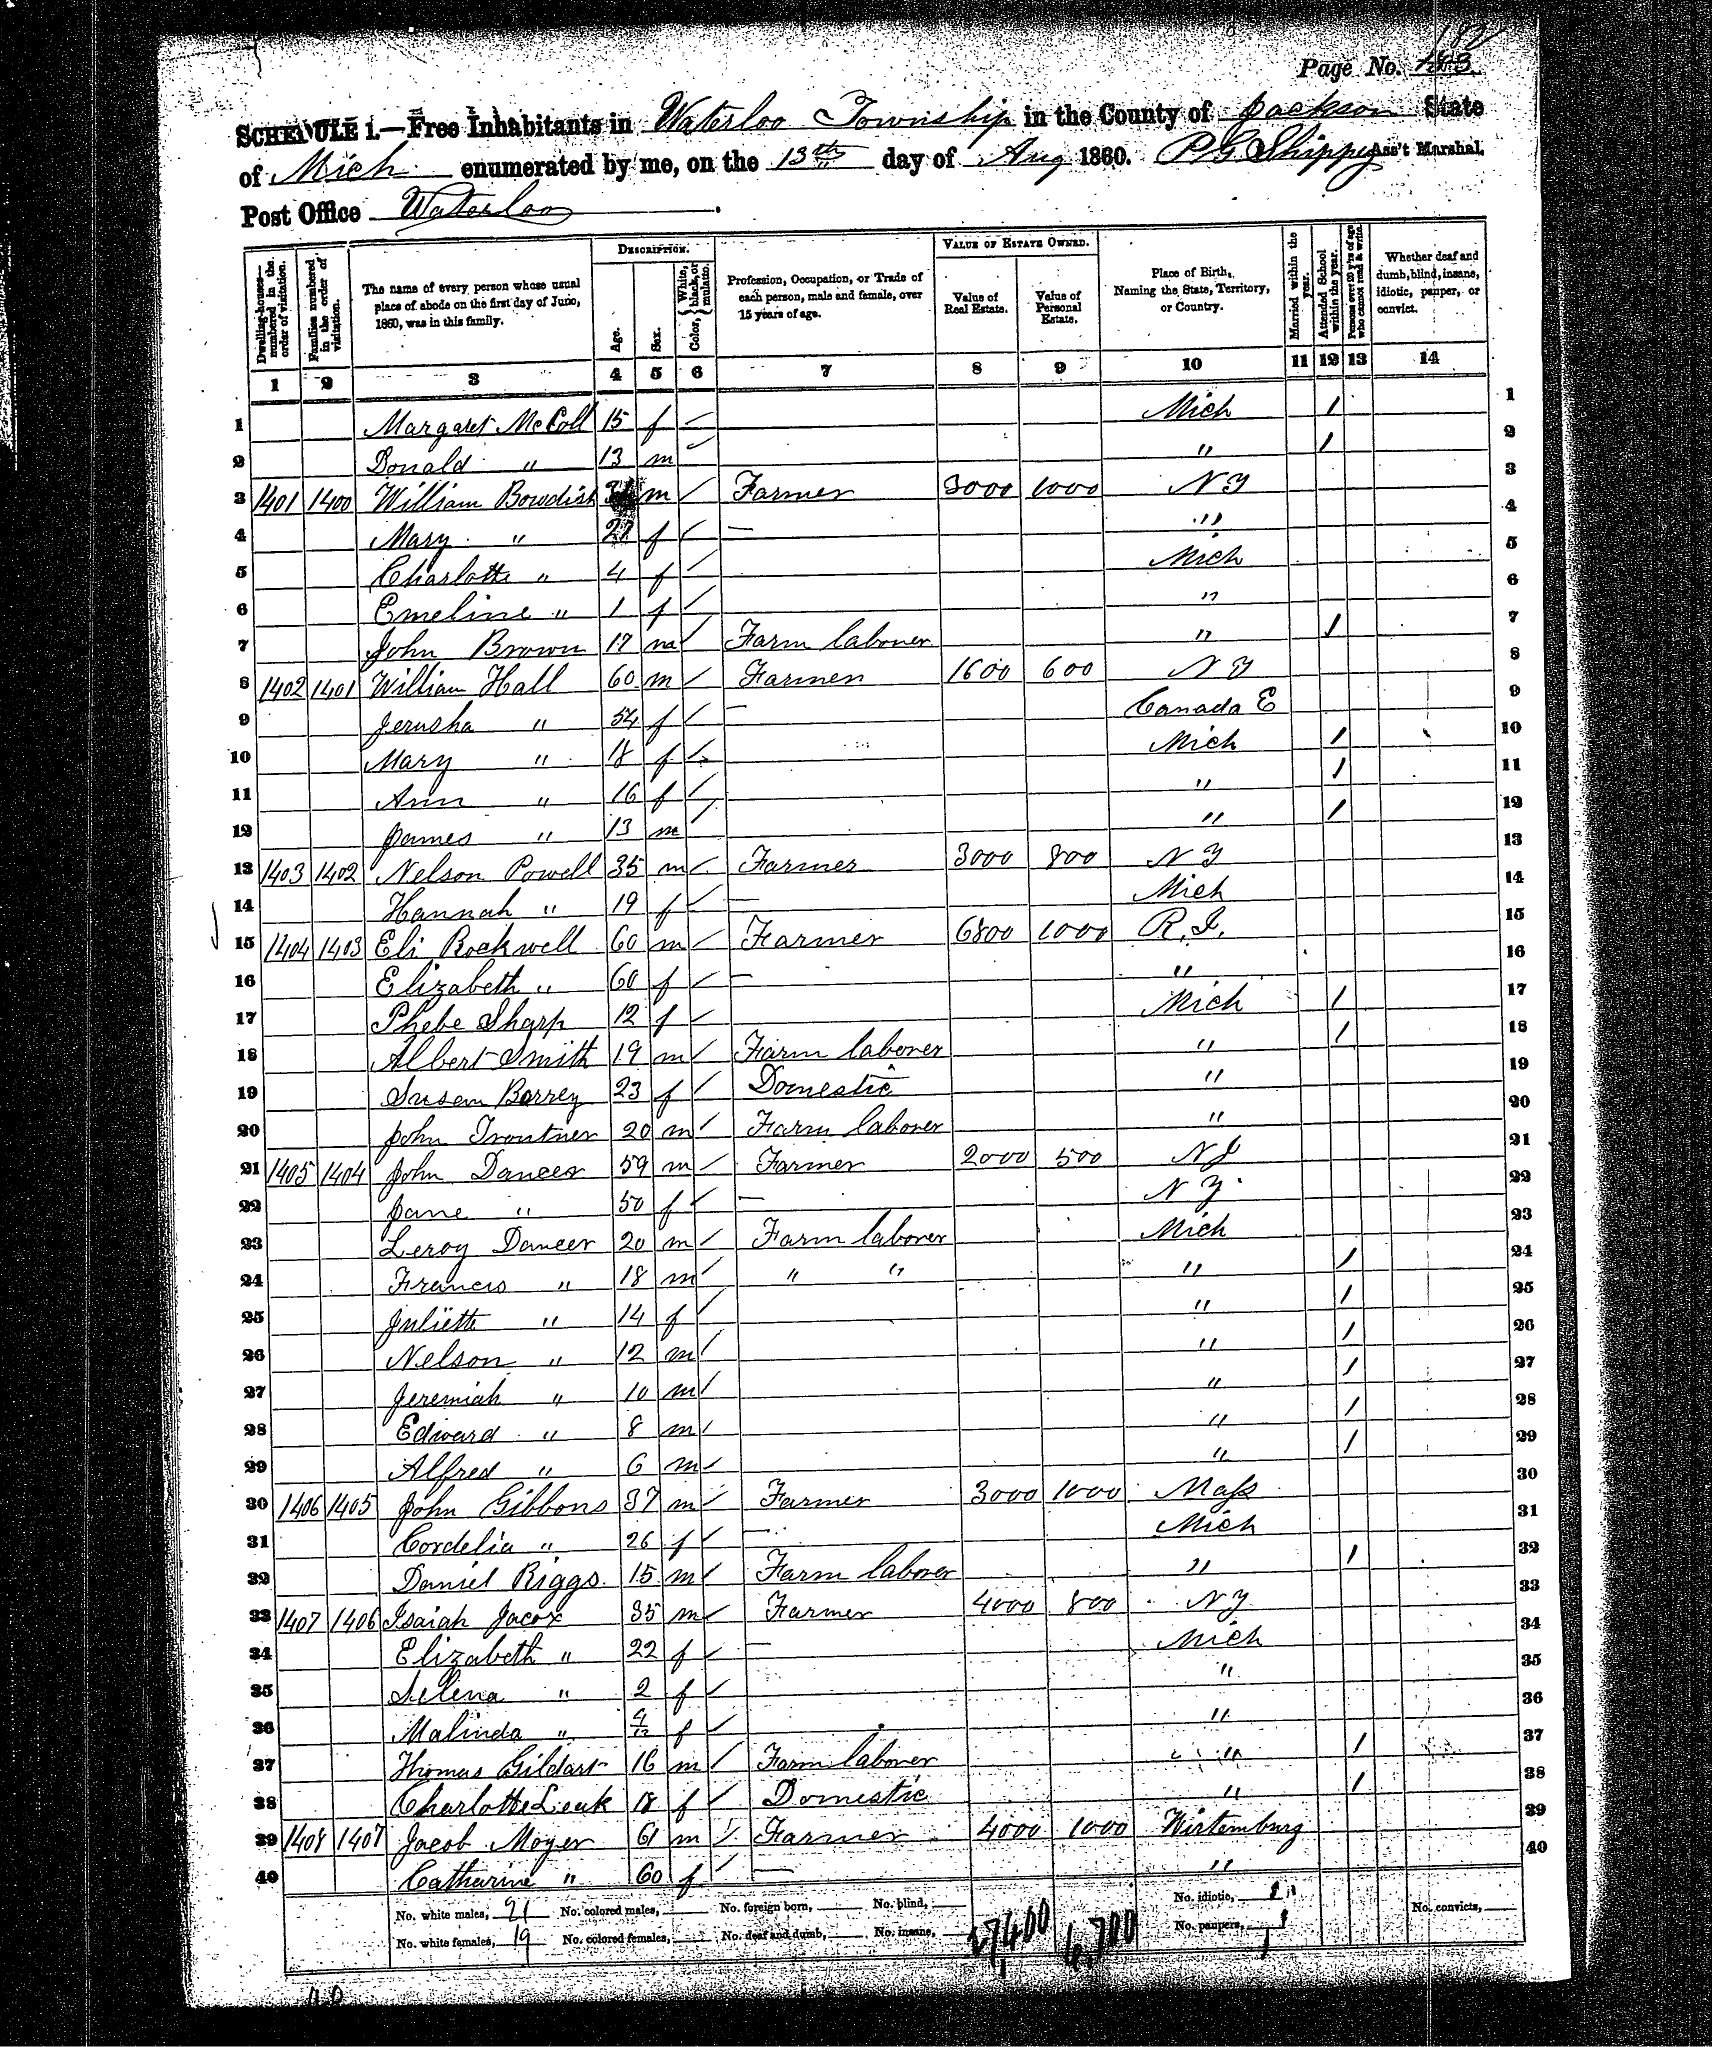 182
Page No. 183.
SCHEDULE 1.—Free Inhabitants in Waterloo Township in the County of Jackson State
of Mich enumerated by me, on the 13th day of Aug 1860. P G Shippey Ass't Marshal.
Post Office Waterloo.
Dwelling-houses—numbered in the order of visitation.
Families numbered in the order of visitation.
The name of every person whose usual place of abode on the first day of June, 1860, was in this family.
DESCRIPTION.
Age.
Sex.
Color, { White, black, or mulatto.
Profession, Occupation, or Trade of each person, male and female, over 15 years of age.
VALUE OF ESTATE OWNED.
Value of Real Estate.
Value of Personal Estate.
Place of Birth, Naming the State, Territory, or Country.
Married within the year.
Attended School within the year.
Persons over 20 y'rs of age who cannot read & write.
Whether deaf and dumb, blind, insane, idiotic, pauper, or convict.
1 2 3 4 5 6 7 8 9 10 11 12 13 14
1 Margaret McColl 15 f Mich / 1
2 Donald " 13 m " / 2
3 1401 1400 William Bowdish m Farmer 3000 1000 N Y 3
4 Mary " 27 f — " 4
5 Charlotte " 4 f Mich 5
6 Emeline " 1 f " 6
7 John Brown 17 m Farm laborer " / 7
8 1402 1401 William Hall 60 m Farmer 1600 600 N Y 8
9 Jerusha " 54 f — Canada E 9
10 Mary " 18 f Mich / 10
11 Ann " 16 f " / 11
12 James " 13 m " / 12
13 1403 1402 Nelson Powell 35 m Farmer 3000 800 N Y 13
14 Hannah " 19 f — Mich 14
15 1404 1403 Eli Rockwell 60 m Farmer 6800 1000 R.I. 15
16 Elizabeth " 60 f — " 16
17 Phebe Sharp 12 f Mich / 17
18 Albert Smith 19 m Farm laborer " / 18
19 Susan Berrey 23 f Domestic " 19
20 John Troutner 20 m Farm laborer " 20
21 1405 1404 John Dancer 59 m Farmer 2000 500 N J 21
22 Jane " 50 f — N Y 22
23 Leroy Dancer 20 m Farm laborer Mich 23
24 Francis " 18 m " " " / 24
25 Juliette " 14 f " / 25
26 Nelson " 12 m " / 26
27 Jeremiah " 10 m " / 27
28 Edward " 8 m " / 28
29 Alfred " 6 m " / 29
30 1406 1405 John Gibbons 37 m Farmer 3000 1000 Mass 30
31 Cordelia " 26 f — Mich 31
32 Daniel Riggs 15 m Farm laborer " / 32
33 1407 1406 Isaiah Jacox 35 m Farmer 4000 800 N Y 33
34 Elizabeth " 22 f — Mich 34
35 Selena " 2 f " 35
36 Malinda " 4/12 f " 36
37 Thomas Gildart 16 m Farm laborer " / 37
38 Charlotte Leek 18 f Domestic " / 38
39 1408 1407 Jacob Moyer 61 m Farmer 4000 1000 Wirtemburg 39
40 Catharine " 60 f — " 40
No. white males, 21 No. colored males, No. foreign born, No. blind, No. idiotic, No. convicts,
No. white females, 19 No. colored females, No. deaf and dumb, No. insane, 27,400 6,700 No. paupers,